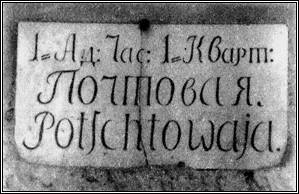 1= Ад: Час: 1= Кварт:
Почтовая.
Potſchtowaja.